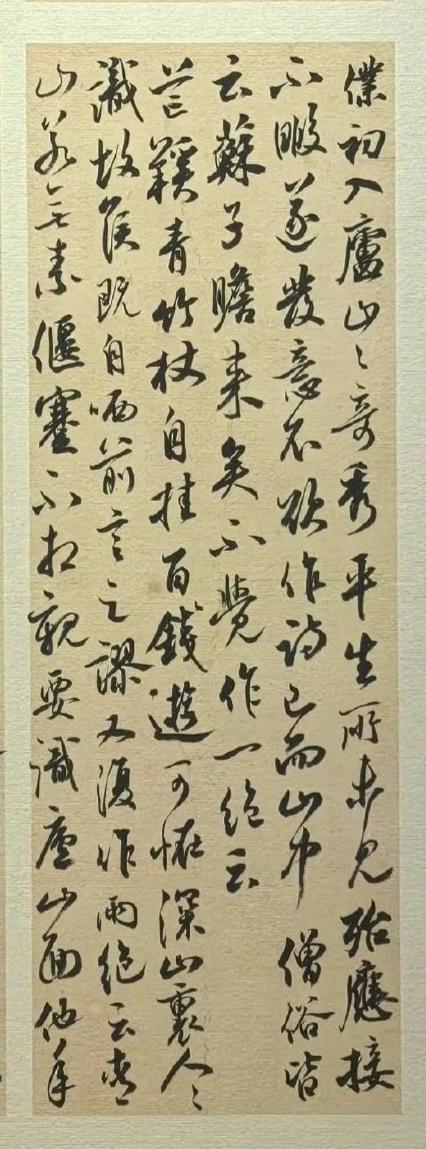 僕初入廬山〻奇秀平生所未見殆應接
不暇遂發意不欲作詩已而山中僧俗皆
云蘇子瞻來矣不覺作一絕云
芒鞵青竹杖自挂百錢遊可怪深山裏人〻
識故侯既自哂前言之謬又復作兩絕云青
山若無素偃蹇不相親要識廬山面他年